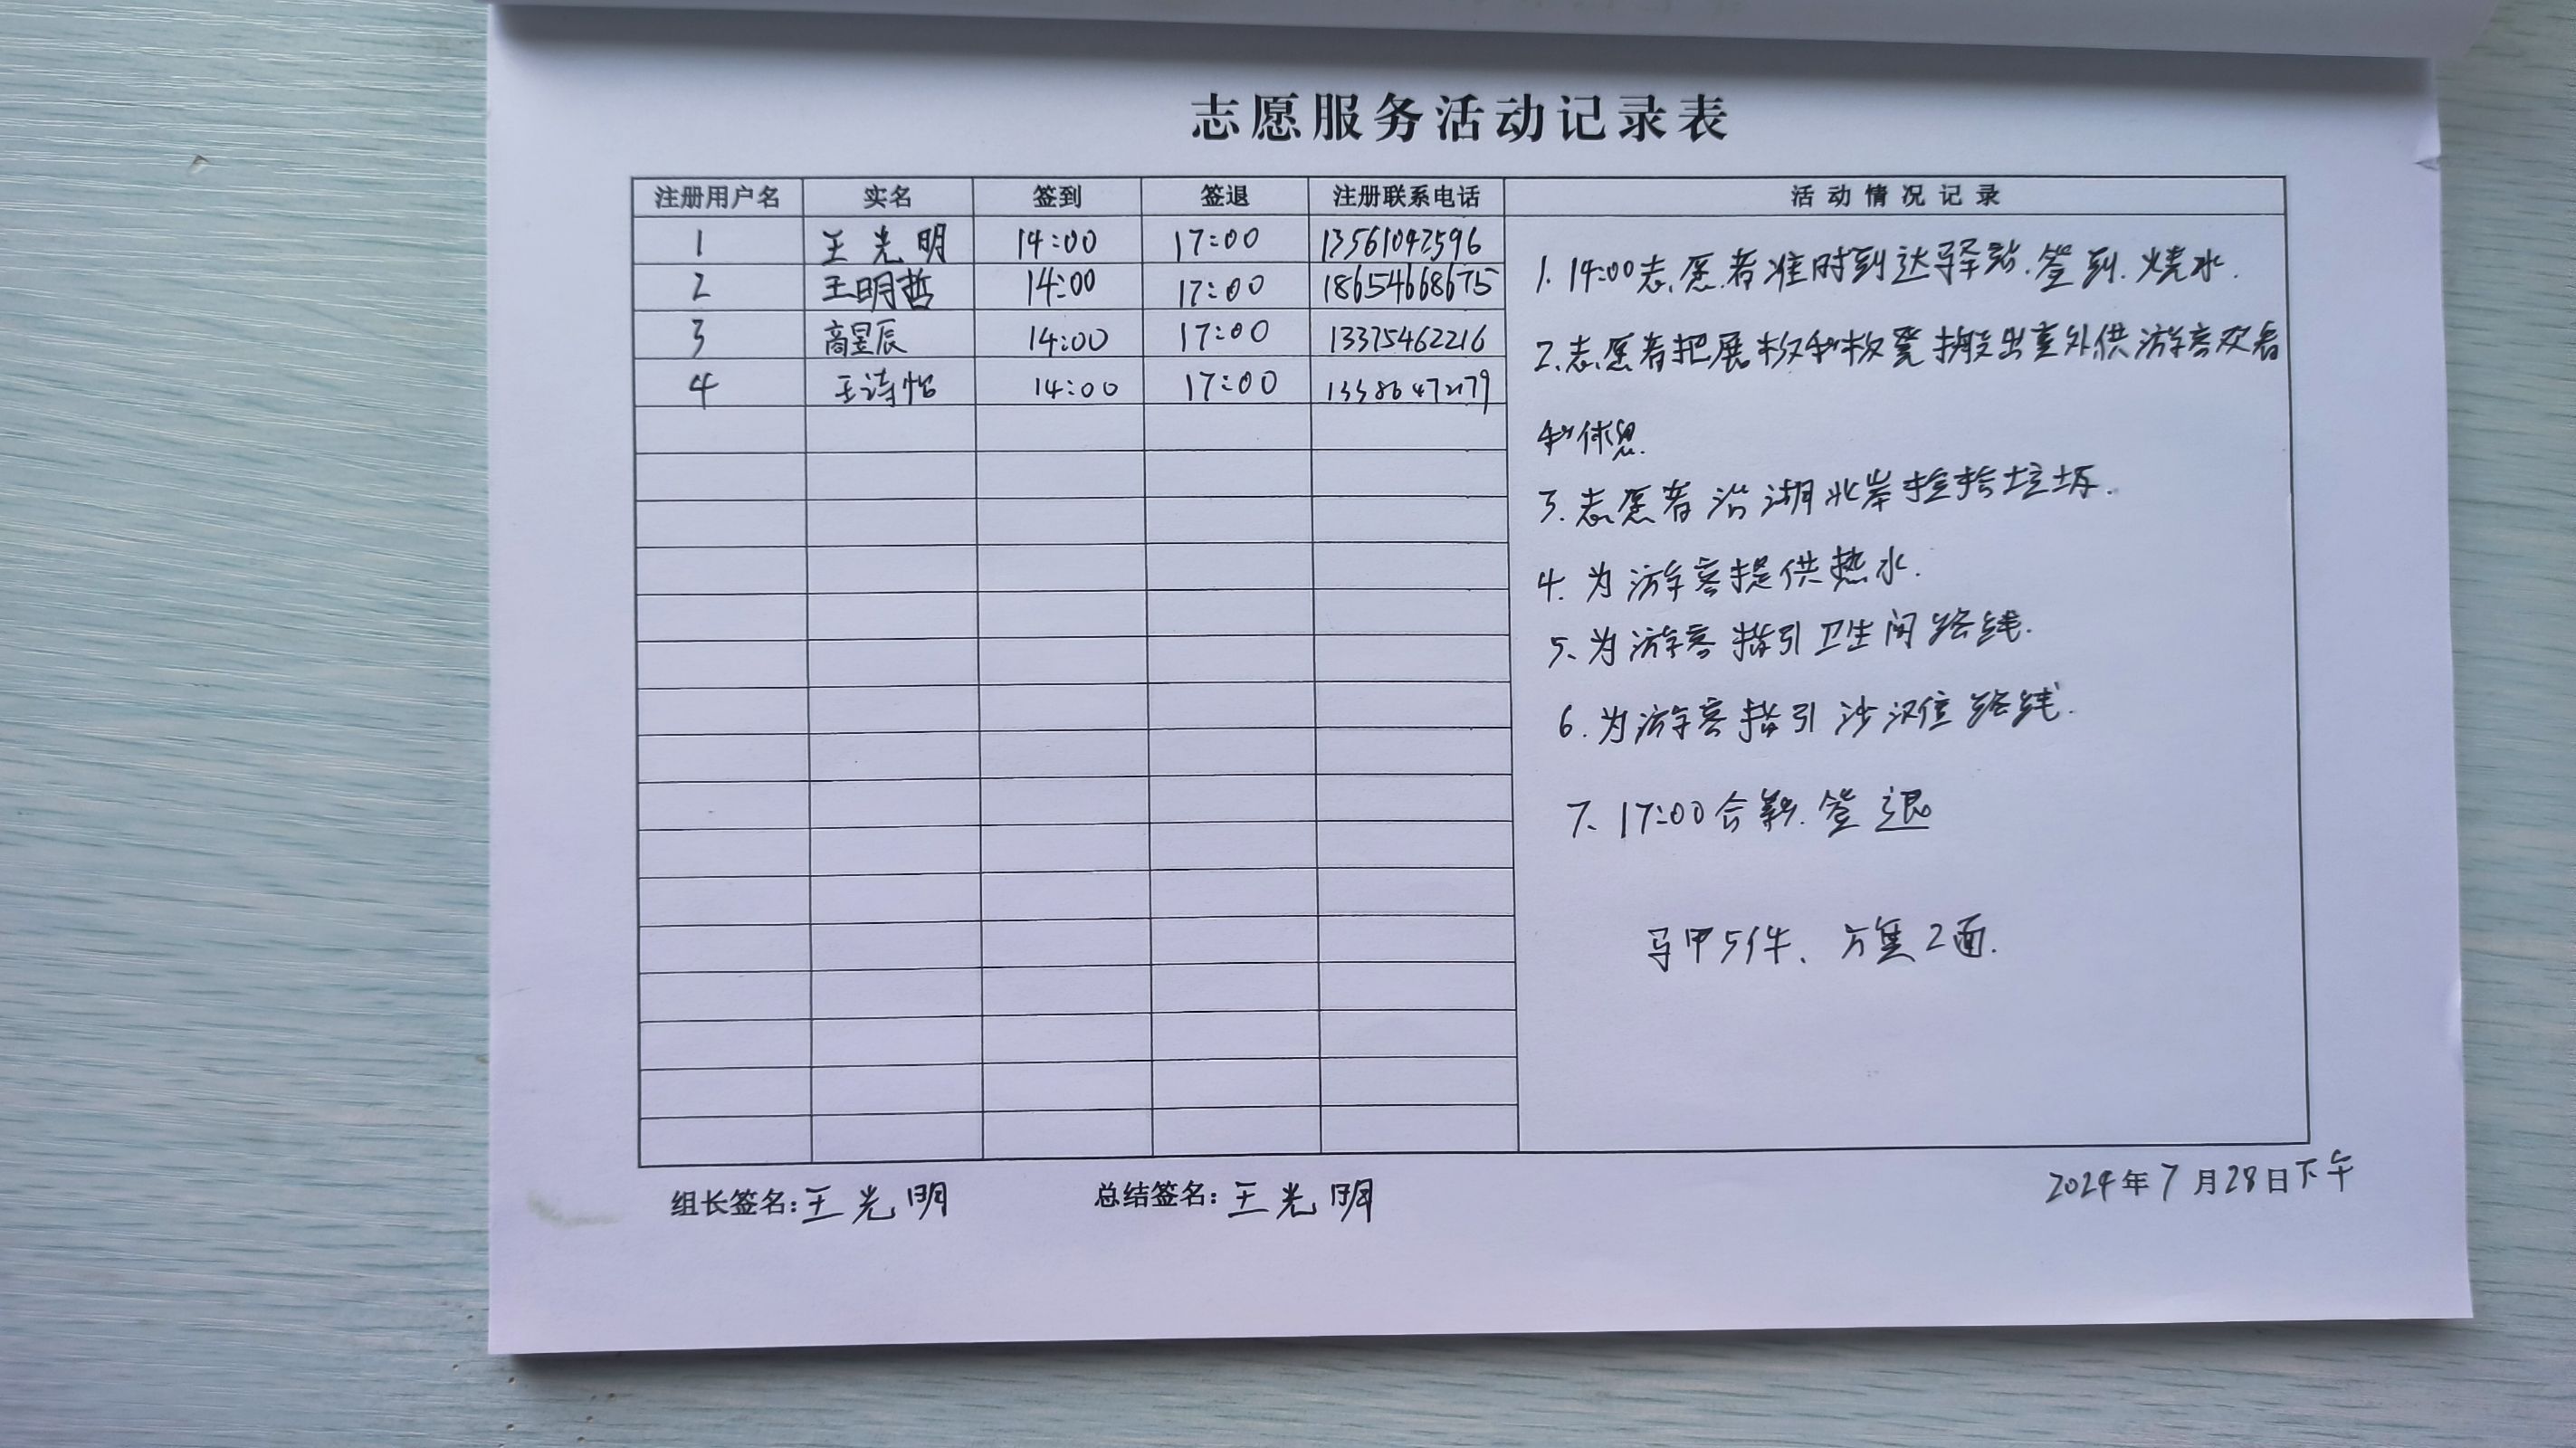 志愿服务活动记录表
注册用户名 实名 签到 签退 注册联系电话 活动情况记录
1 王光明 14:00 17:00 13561042596
2 王明哲 14:00 17:00 18654668675
3 商昱辰 14:00 17:00 13375462216
4 王诗怡 14:00 17:00
1. 14:00志愿者准时到达驿站.签到.烧水.
2.志愿者把展板和板凳搬出室外供游客观看
和休息.
3.志愿者沿湖北岸捡拾垃圾.
4.为游客提供热水.
5、为游客指引卫生间路线.
6.为游客指引沙汉位路线.
7、17:00合影.签退
马甲5件、方隼2面.
组长签名:王光明 总结签名:王光明
2024年7月28日下午